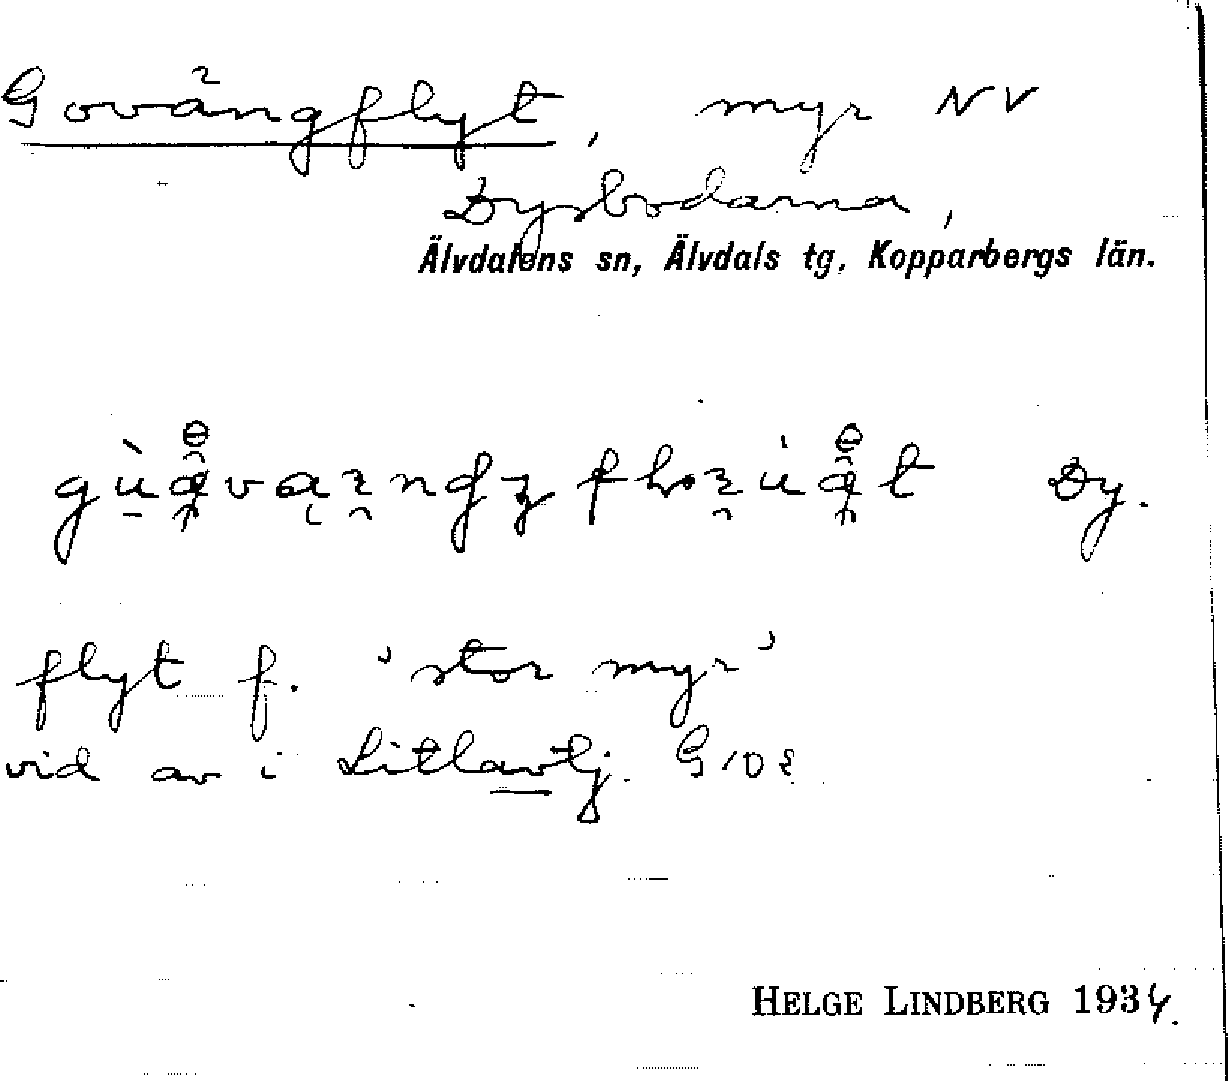 Govängflyt, myr NV
Dysbodarna,
Älvdalens sn, Älvdals tg, Kopparbergs län.
Dy.
flyt f. 'stor myr'
vid av i
HELGE LINDBERG 1934.